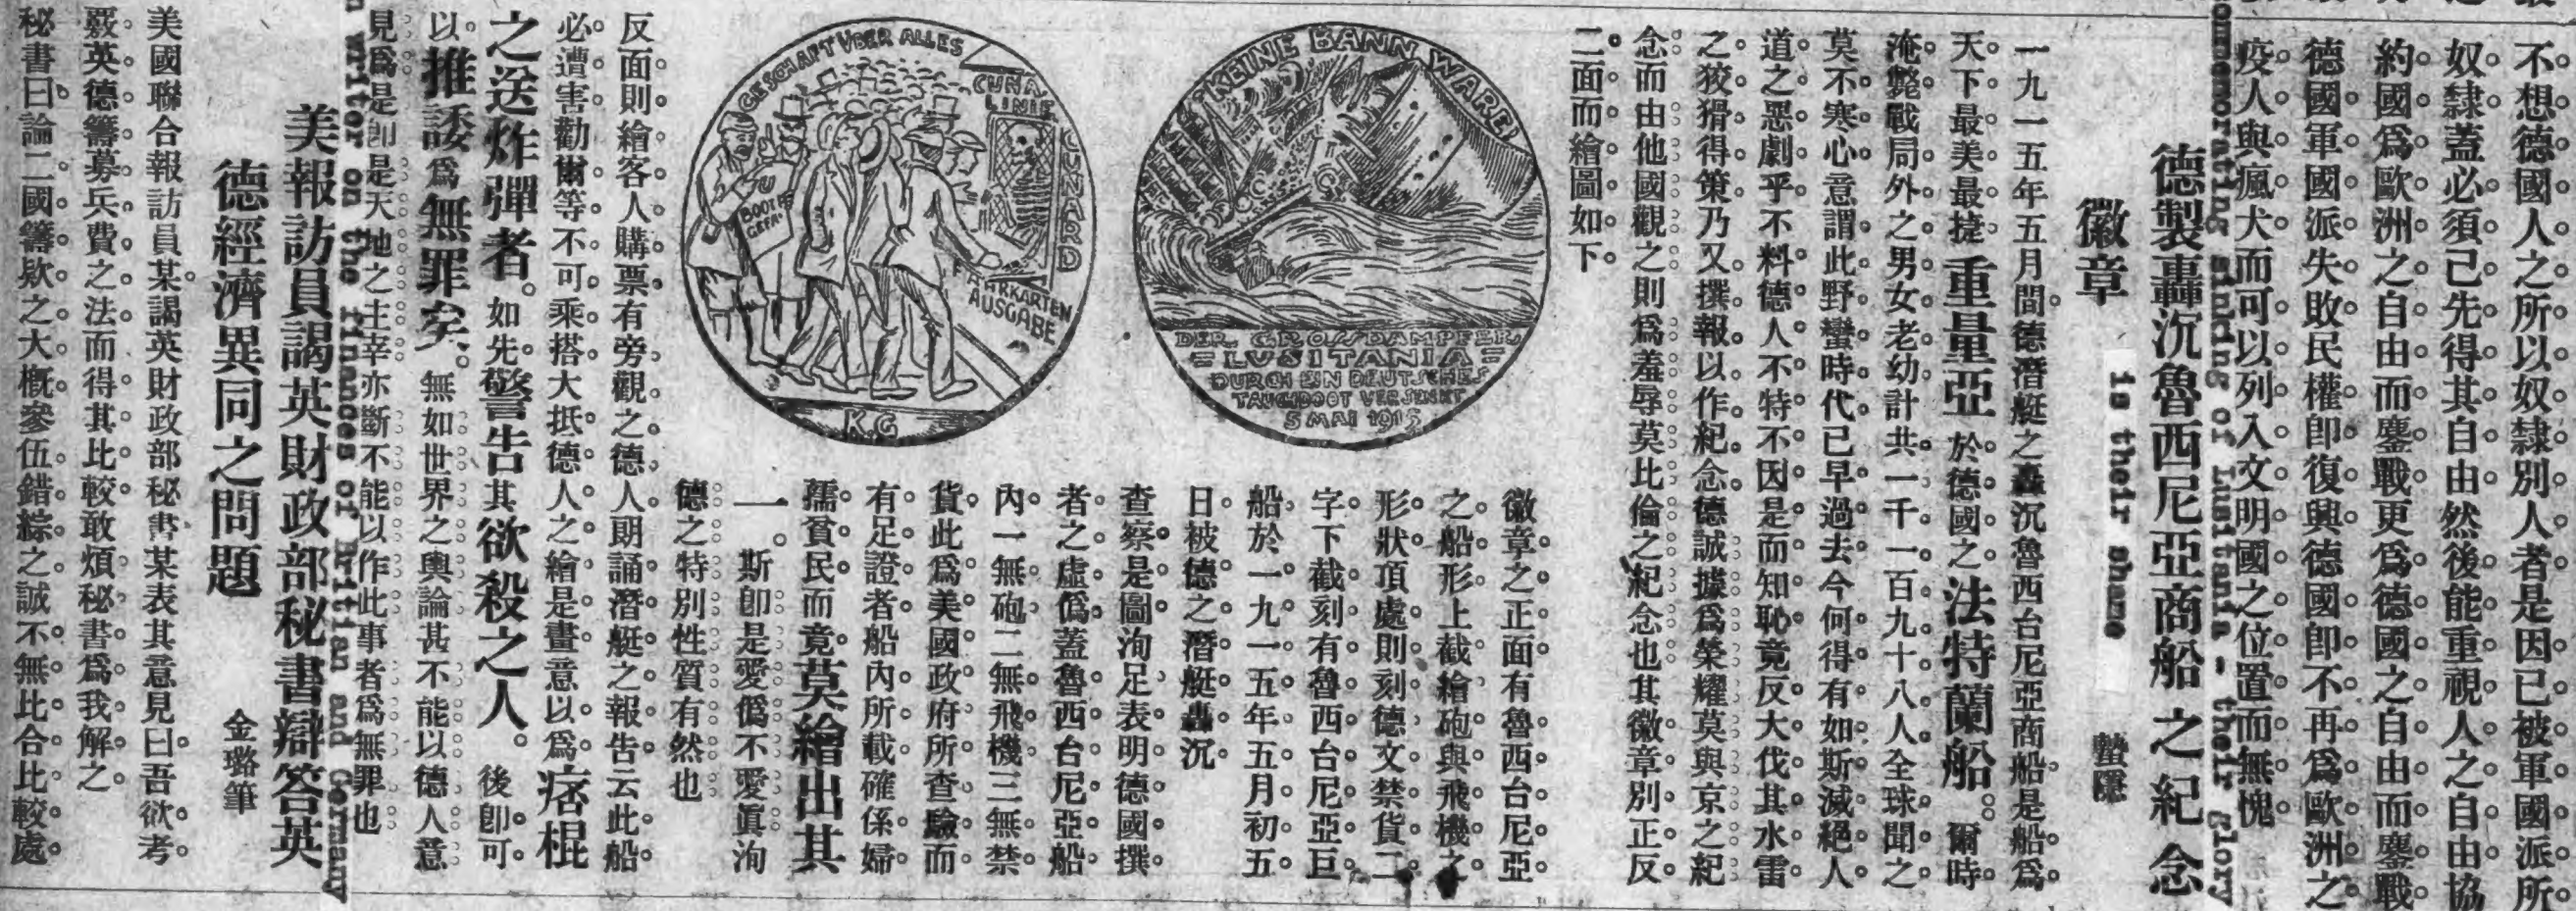 不想德國人之所以奴隸別人者是因已被軍國派所
奴隸蓋必須己先得其自由然後能重視人之自由協
約國爲歐洲之自由而鏖戰更爲德國之自由而鏖戰
德國軍國派失敗民權卽復興德國卽不再爲歐洲之
疫人與瘋犬而可以列入文明國之位置而無愧
commemorating sinking of Lusitania - their glory
is their shame
德製轟沉魯西尼亞商船之紀念
徽章
蟄隱
一九一五年五月間德潛艇之轟沉魯西台尼亞商船是船爲
天下最美最捷重量亞於德國之法特蘭船。爾時
淹斃戰局外之男女老幼計共一千一百九十八人全球聞之
莫不寒心意謂此野蠻時代已早過去今何得有如斯滅絕人
道之惡劇乎不料德人不特不因是而知恥竟反大伐其水雷
之狡猾得策乃又撰報以作紀念德誠據爲榮耀莫與京之紀
念而由他國觀之則爲羞辱莫比倫之紀念也其徽章別正反
二面而繪圖如下
KEINE BANNWARE!
DER GROSSDAMPFER
=LUSITANIA=
DURCH EIN DEUTSCHES
TAUCHBOOT VERSENKT
5 MAI 1915
GESCHÄFT ÜBER ALLES
CUNA
LINIE
CUNARD
U
BOOT
GEFA
FAHRKARTEN
AUSGABE
K.G
徽章之正面有魯西台尼亞
之船形上截繪砲與飛機之
形狀頂處則刻德文禁貨二
字下截刻有魯西台尼亞巨
船於一九一五年五月初五
日被德之潛艇轟沉
查察是圖洵足表明德國撰
者之虛僞蓋魯西台尼亞船
內一無砲二無飛機三無禁
貨此爲美國政府所查驗而
有足證者船內所載確係婦
孺貧民而竟莫繪出其
一。斯卽是愛僞不愛眞洵
德之特別性質有然也
反面則繪客人購票有旁觀之德人朗誦潛艇之報告云此船
必遭害勸爾等不可乘搭大抵德人之繪是畫意以爲痞棍
之送炸彈者。如先警告其欲殺之人。後卽可
以推諉爲無罪矣。無如世界之輿論甚不能以德人意
見爲是卽是天地之主宰亦斷不能以作此事者爲無罪也
writer on the finances of Britian and Germany
美報訪員謁英財政部秘書辯答英
德經濟異同之問題
金璐筆
美國聯合報訪員某謁英財政部秘書某表其意見曰吾欲考
覈英德籌募兵費之法而得其比較敢煩秘書爲我解之
秘書曰論二國籌欵之大概參伍錯綜之誠不無比合比較處